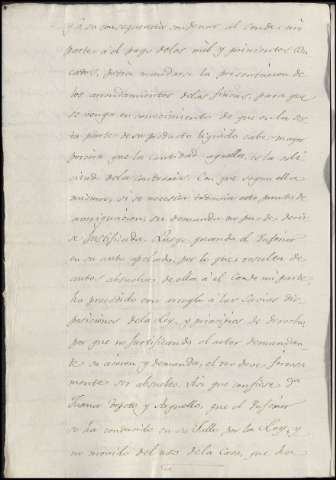 y á su consequencia condenar al Conde mi
parte á el pago de los mil y quinientos du
cados, podria mandarse la presentacion de
los arrendamientos de las fincas, para que
se venga en conocimiento de que en la
parte de su producto liquido cabe mayor
porcion, que la cantidad aquella, es la
de la contraria. Con que segun ella
misma, si se necesita todavia este punto de
averiguacion, su demanda no puede decir
se justificada. Luego quando el Inferior
en su auto apelado, por lo que resulta de
autos absuelve de ella á el Conde mi parte,
ha procedido con arreglo á las sabias dis
posiciones de la Ley, y principios de derecho,
por que no justificando el actor demandan
te su accion y demanda, el reo deve forzosa
mente ser absuelto. Asi que confiese Dn
y Arguello, que el Inferior
se ha conducido en su fallo por la Ley, y
no movido del uso de la Casa, que dice